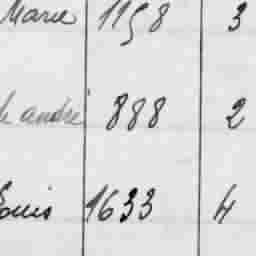 Marie 1158 3
h andré 888 2
Louis 1633 4